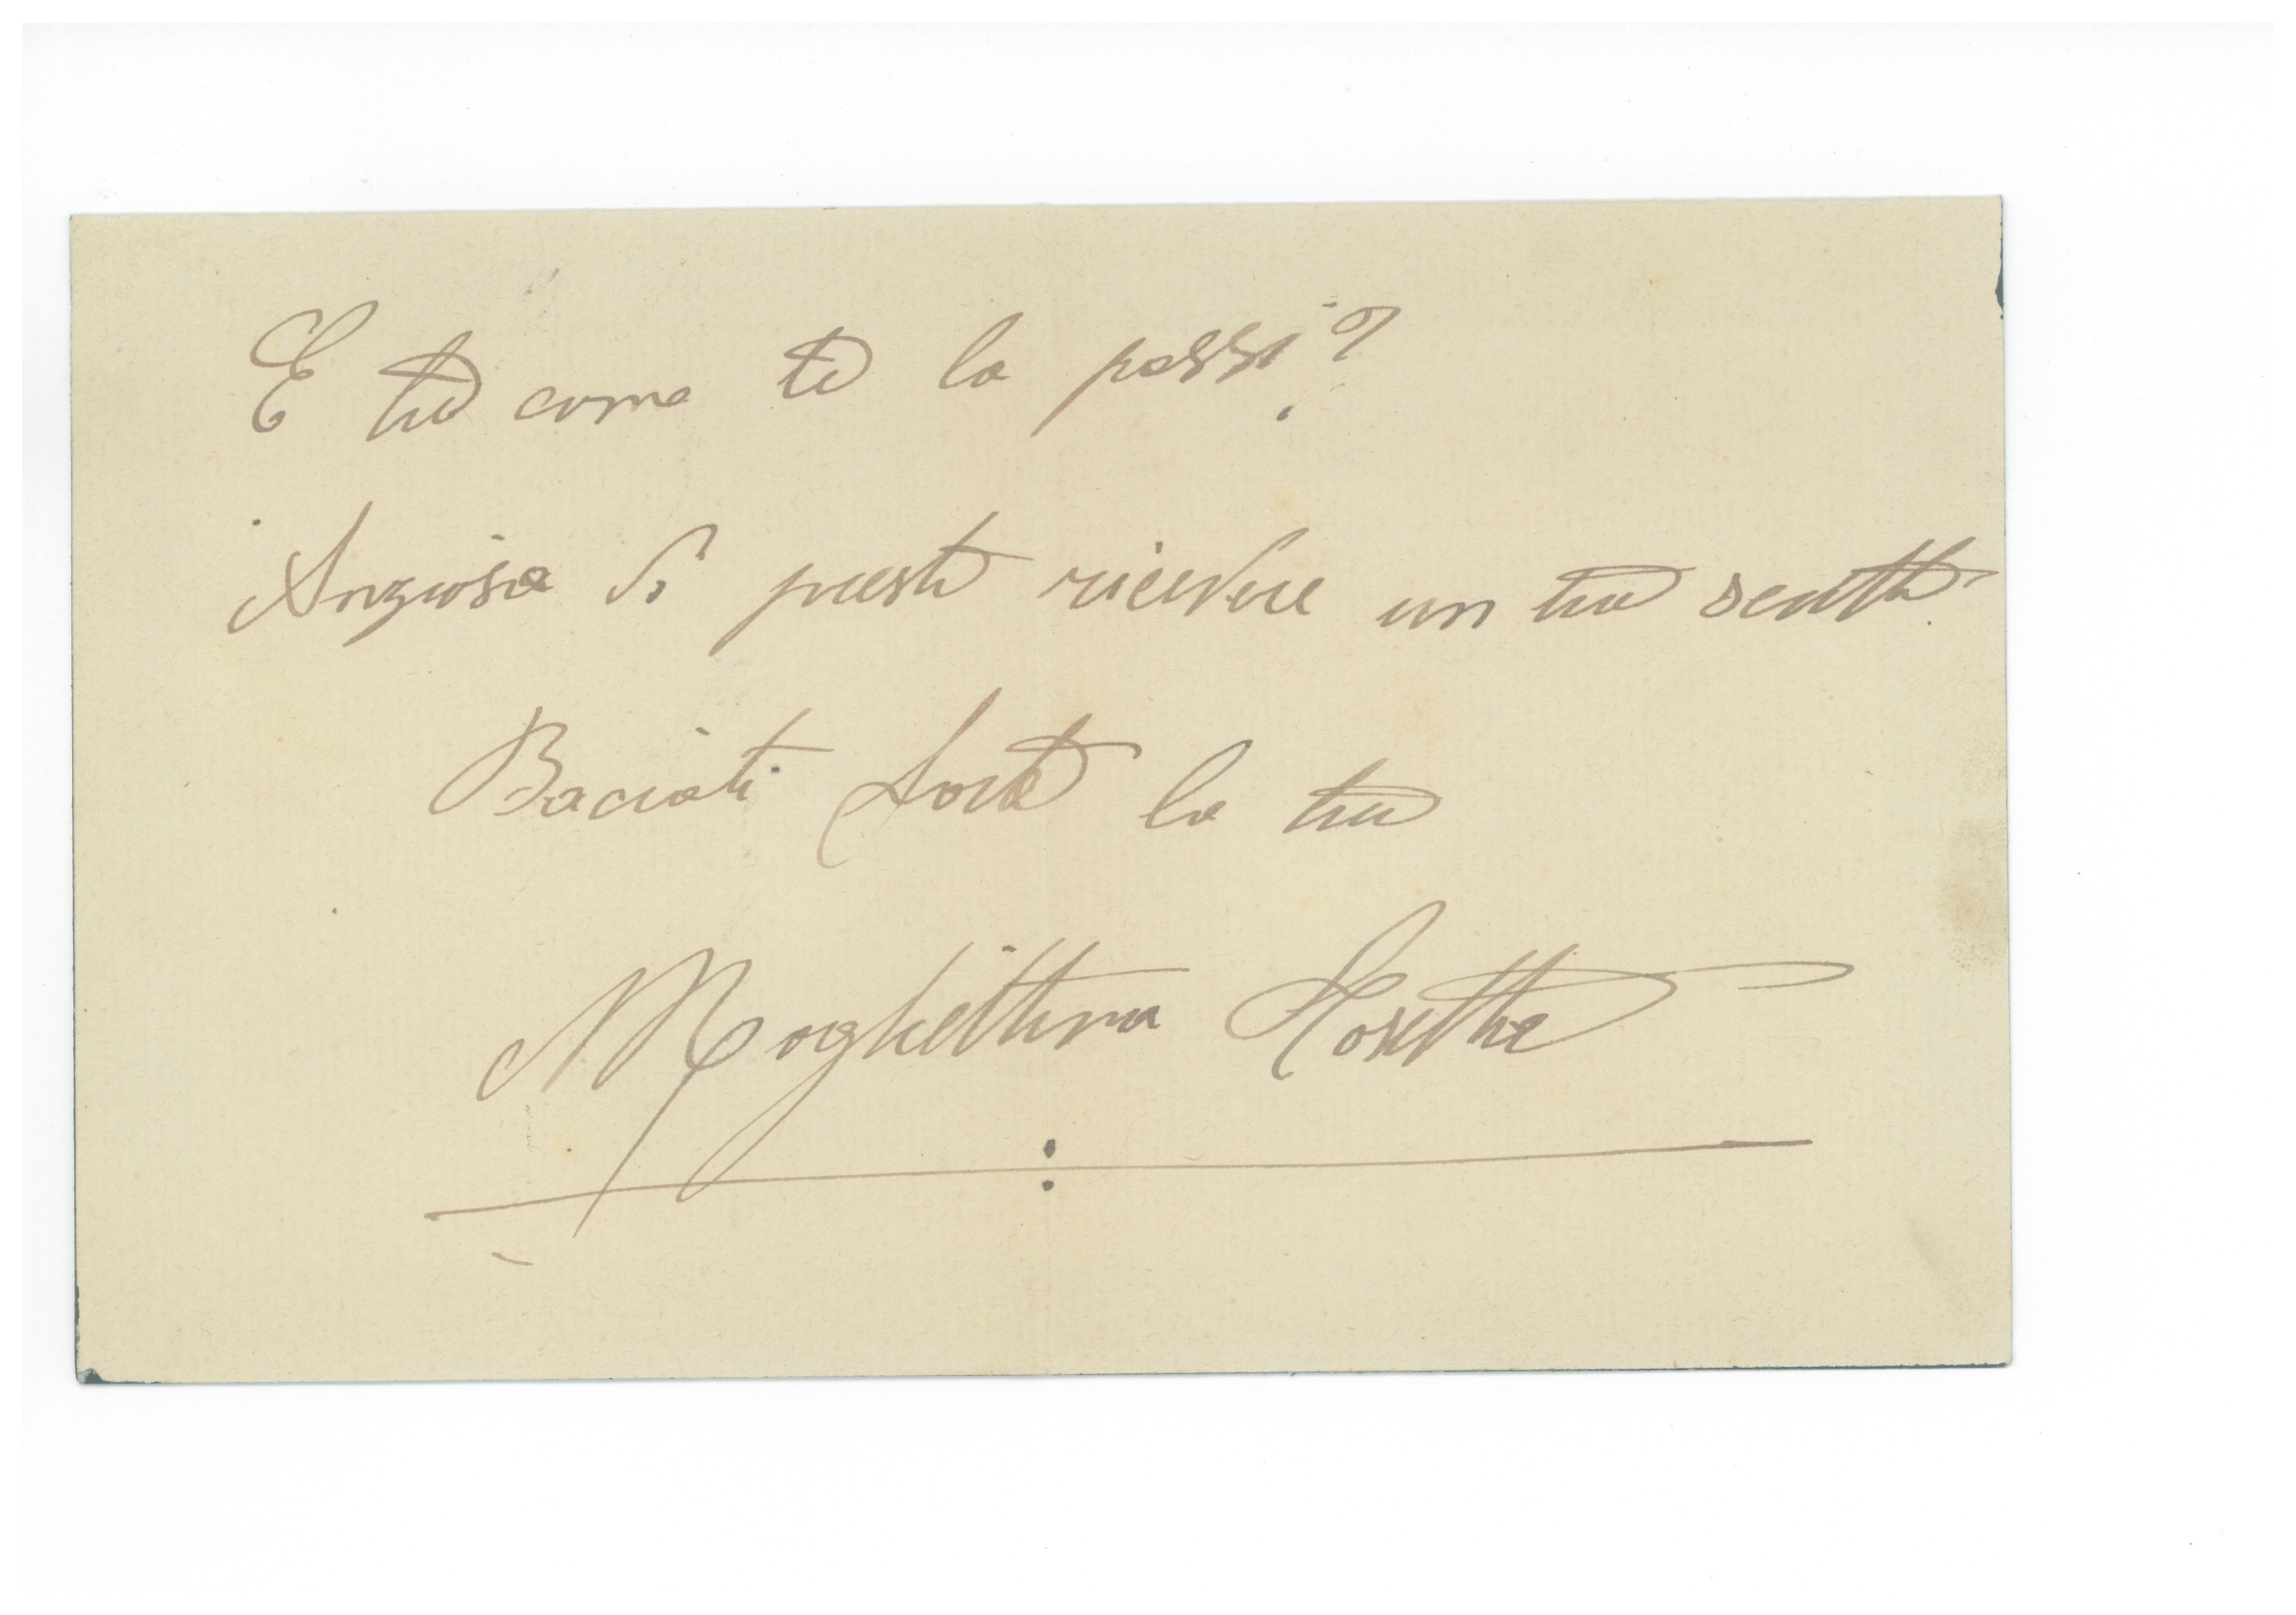 E tu come te la passi?
Anziosa di presto ricevere un tuo scritto.
Baciati forte la tua
Mogliettina Rosetta